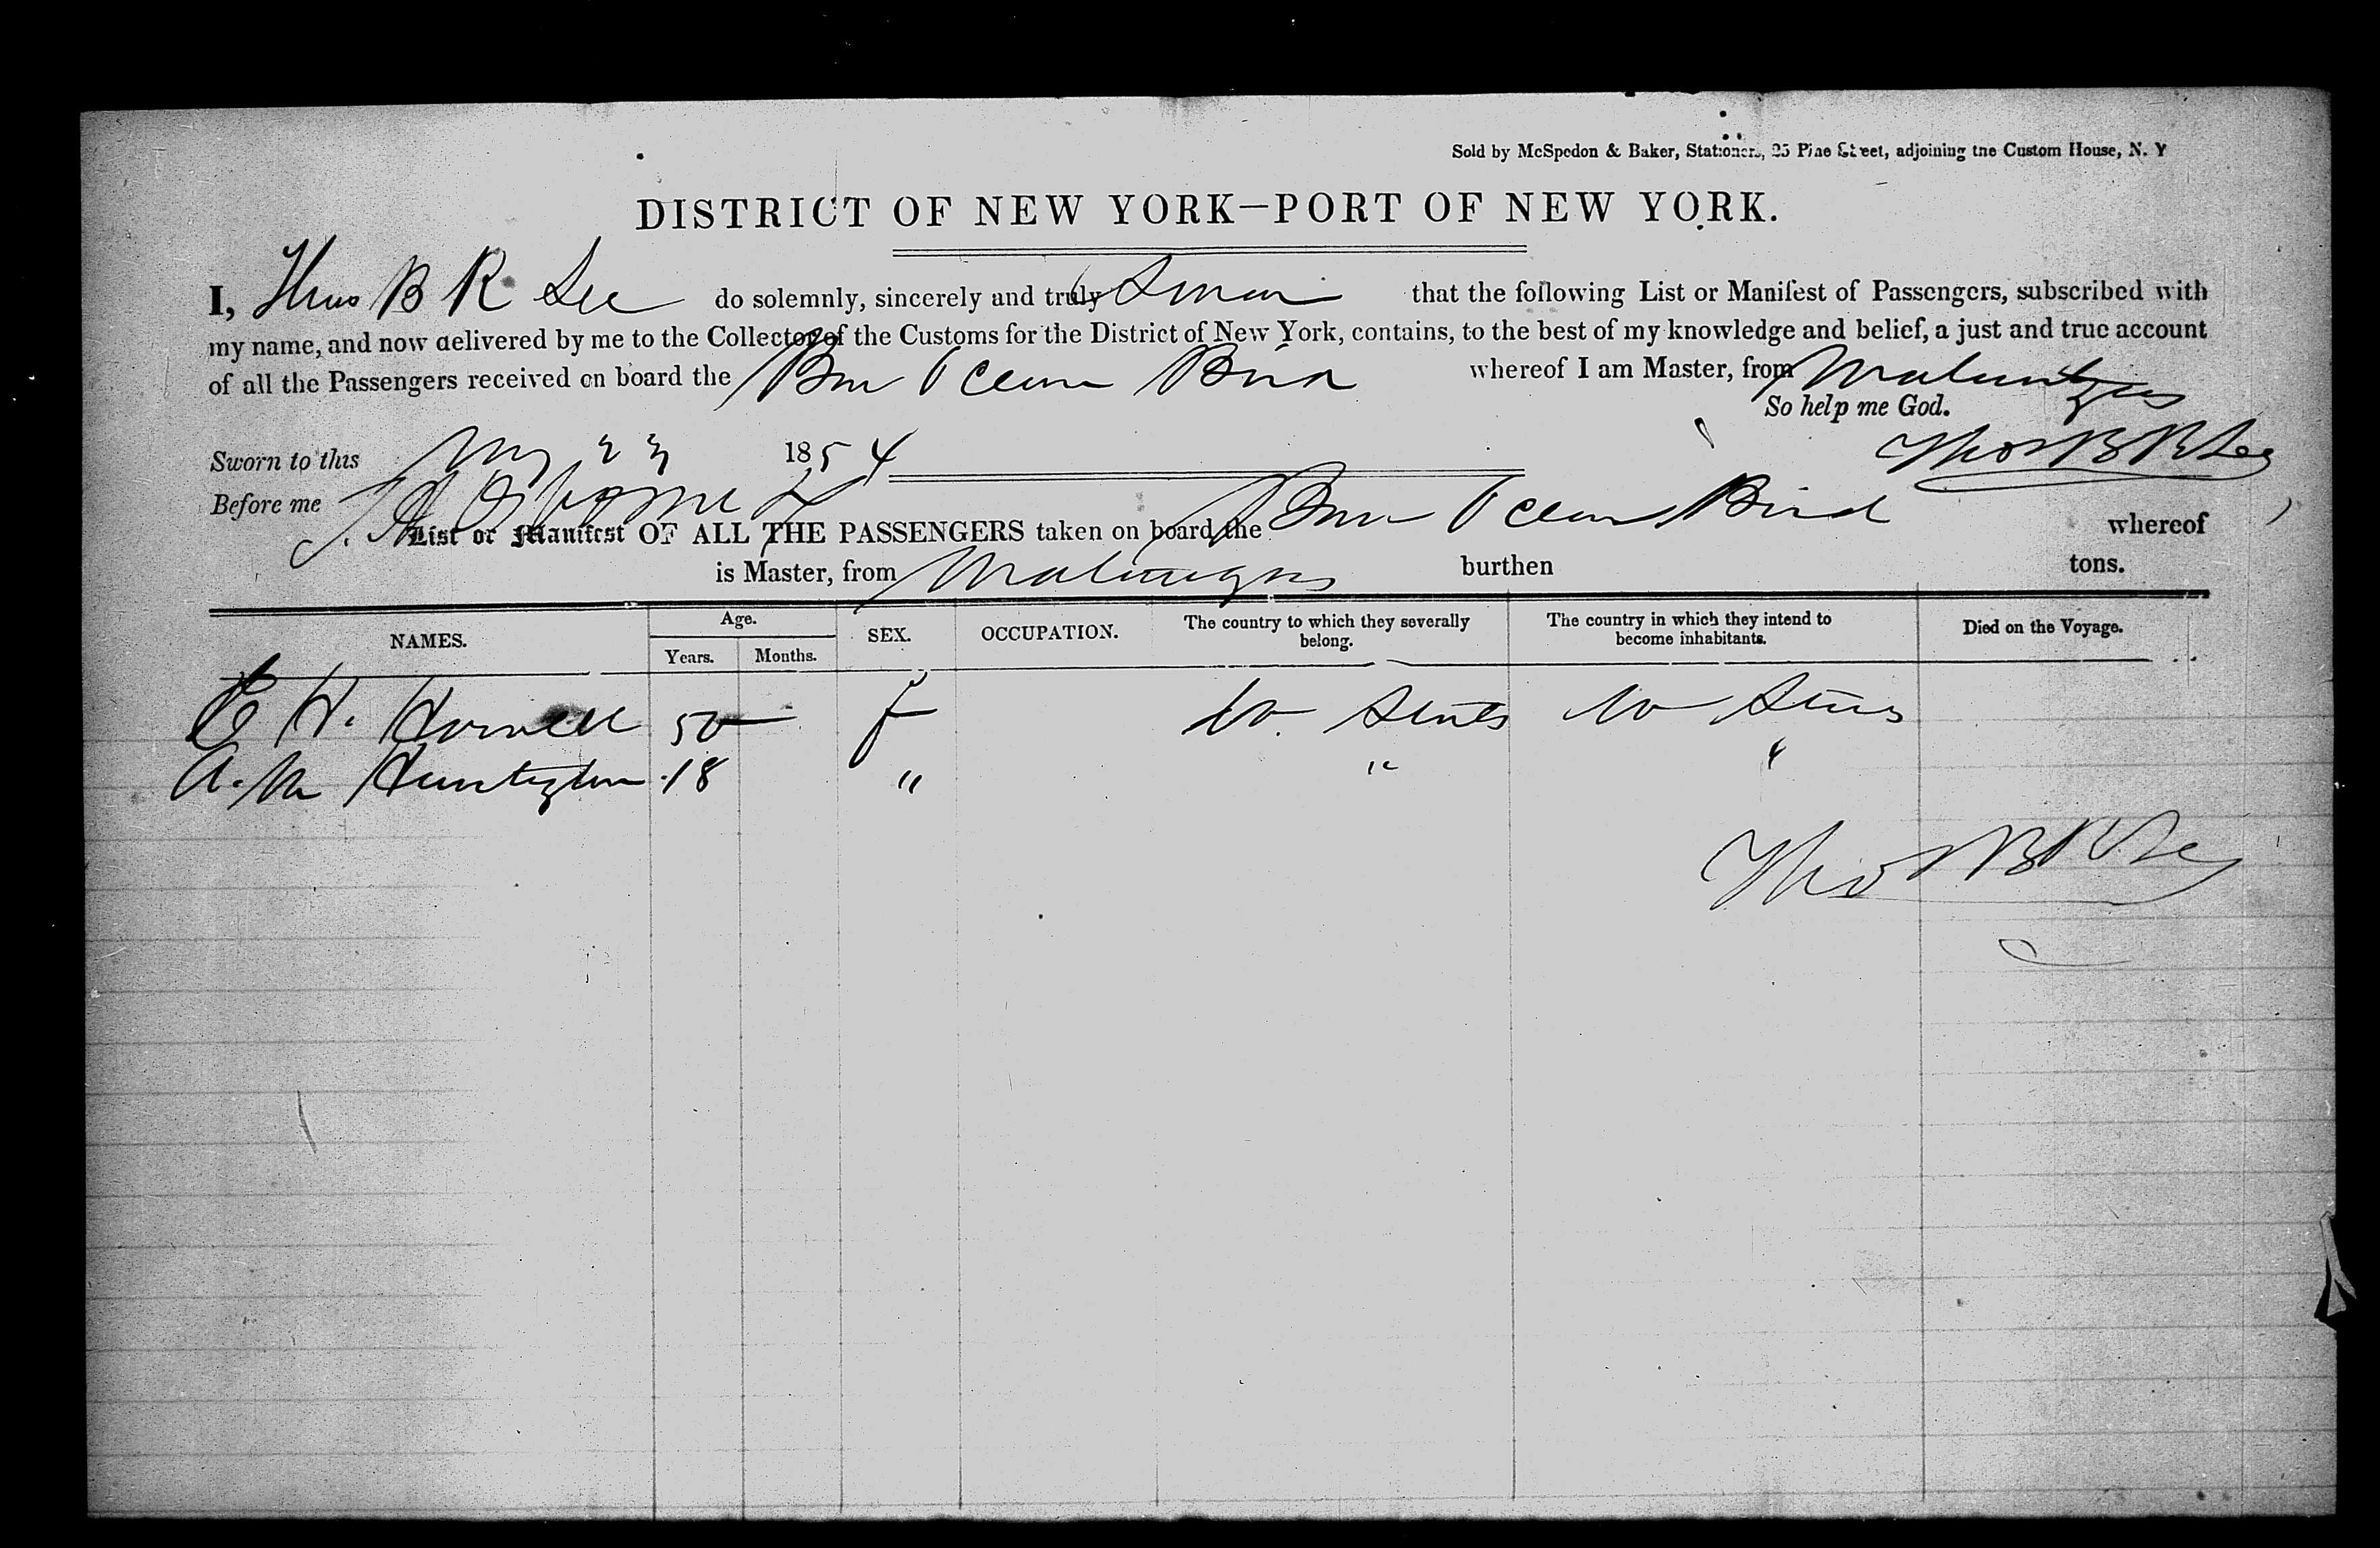 Sold by McSpedon & Baker, Stationers, 25 Pine Street, adjoining the Custom House, N. Y
DISTRICT OF NEW YORK—PORT OF NEW YORK.
I, Thos B R Lee do solemnly, sincerely and truly Swear that the following List or Manifest of Passengers, subscribed with
my name, and now delivered by me to the Collector of the Customs for the District of New York, contains, to the best of my knowledge and belief, a just and true account
of all the Passengers received on board the Ocean Bird whereof I am Master, from Matanzas
So help me God.
Sworn to this May 23 1854
Thos B R Lee
Before me
List or Manifest OF ALL THE PASSENGERS taken on board the Ocean Bird whereof
is Master, from Matanzas burthen tons.
NAMES. Age. Years. Months. SEX. OCCUPATION. The country to which they severally belong. The country in which they intend to become inhabitants. Died on the Voyage.
E H. Howell 50 f U States U States
A. M Huntington 18 " " "
Thos B R Lee